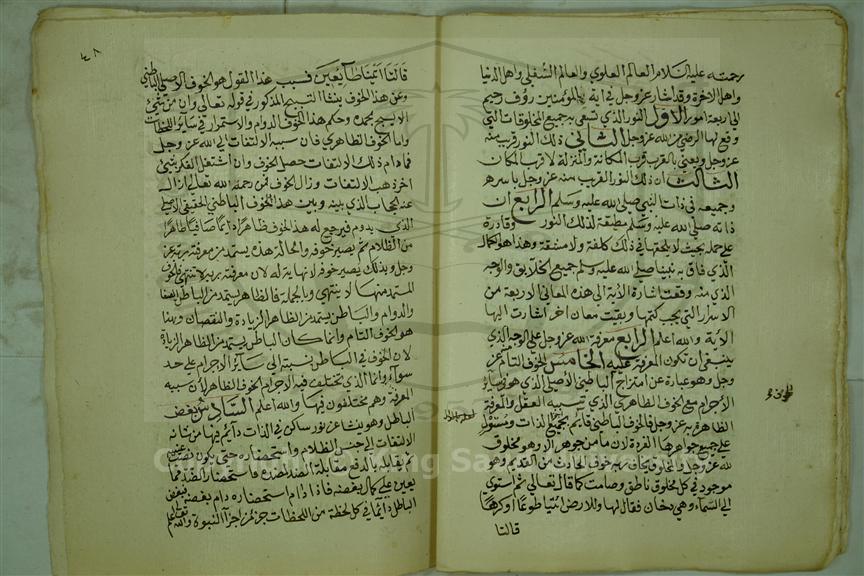 رحمته عليه السلام العالم العلوي والعالم السفلي واهل الدنيا
واهل الاخرة وقد اشار عز وجل في اية بالمؤمنين رؤف رحيم
الى اربعة امور الاول النور الذي تسقى به جميع المخلوقات التي
وقع لها الرضى من الله عز وجل الثاني ذلك النور قرب منه
عز وجل ويعني بالقرب قرب المكانة والمنزلة لا قرب المكان
الثالث ان ذلك النور القريب منه عز وجل باسره
وجميعه في ذات النبي صلى الله عليه وسلم الرابع ان
ذاته صلى الله عليه وسلم مطيقة لذلك النور وقادرة
على حمله بحيث لا يلحقها في ذلك كلفة ولا مشقة وهذا هو الكمال
الذي فاق به نبينا صلى الله عليه وسلم جميع الخلائق والوجه
الذي منه وقعت اشارة الاية الى هذه المعاني الاربعة من
الاسرار التي يجب كتمها وبقيت معان اخر اشارت اليها
الاية والله اعلم الرابع معرفة الله عز وجل على الوجه الذي
ينبغي ان تكون المعرفة عليه الخامس الخوف التام من عز
وجل وهو عبارة عن امتزاج الباطني الاصلي الذي هو في سائر
الاجرام مع الخوف الظاهري الذي تسببه العقل والمعرفة
الظاهرة به عز وجل فالخوف الباطني قائم بجميع الذات ومستول
على جميع جواهرها الفردة لان ما من جوهر الا وهو مخلوق
لله عز وجل والمخلوق يخاف ربه خوف الحادث من القديم وهو
موجود في كل مخلوق ناطق وصامت كما قال تعالى ثم استوى
الى السماء وهي دخان فقال لها وللارض ائتيا طوعا او كرها
قالتا
٤٨
قالتا اتينا طائعين فسبب هذا القول هو الخوف الاصلي الباطني
وعن هذا الخوف ينشا التسبيح المذكور في قوله تعالى وان من شئ
الا يسبح بحمده وحكم هذا الخوف الدوام والاستمرار في سائر اللحظات
واما الخوف الظاهري فان سببه الالتفات الى الله عز وجل
فما دام ذلك الالتفات حصل الخوف وان اشتغل الفكر بشئ
اخر ذهب الالتفات وزال الخوف فمن رحمته الله تعالى ازال
عنه الحجاب الذي بينه وبين هذا الخوف الباطني الحقيقي الاصلي
الذي يدوم فيرجع له هذا الخوف ظاهرا دائما صافيا طاهرا
من الظلام ثم يصير خوفه والحالة هذه يستمد من معرفة ربه عز
وجل وبذلك يصير خوفه لا نهاية له لان معرفته بربه لا تنتهي فالخوف
المستمد منها لا ينتهي وبالجملة فالظاهر يستمد من الباطن الصفا
والدوام والباطن يستمد من الظاهر الزيادة والنقصان وهذا
هو الخوف التام وانما كان الباطن يستمد من الظاهر الزيادة
لان الخوف في الباطن نسبته الى سائر الاجرام على حد
سواء وانما الذي تختلف فيه الاجرام الخوف الظاهر لان سببه
المعرفة وهم مختلفون فيها والله اعلم السادس بغض
الباطل وهو ينشا عن نور ساكن في الذات دائم فيها من شانه
الالتفات الى جنس الظلام واستحضاره حتى يكون نصب عينيه
ثم يقابله بالدفع مقابلة الضد لضده واستحضار الضد مما
يعين على كمال بغضه فاذا دام استحضاره دام بغضه فبغض
الباطل دائما في كل لحظة من اللحظات جزء من اجزاء النبوة والله تعالى اعلم